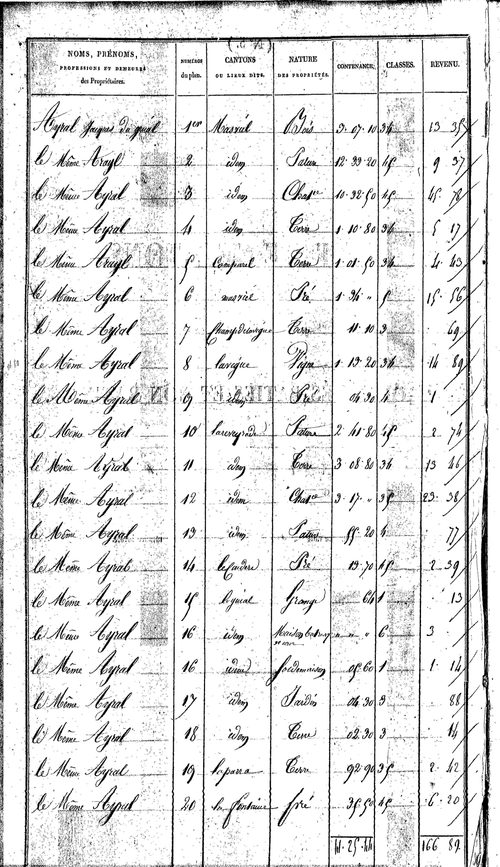 NOMS, PRÉNOMS, PROFESSIONS ET DEMEURES des Propriétaires. NUMÉROS du plan. CANTONS OU LIEUX DITS. NATURE DES PROPRIÉTÉS. CONTENANCE. CLASSES. REVENU.
Ayral Jacques 1er Masviel Bois 3 07 10 34 13 35
le Même Ayral 2 idem Pature 12 33 20 45 9 37
le Même Ayral 3 idem Chat 10 32 50 45 45 78
le Même Ayral 4 idem Terre 1 10 80 34 5 17
le Même Ayral 5 Terre 1 01 50 34 4 43
le Même Ayral 6 masviel Pré 1 34 " 5 15 56
le Même Ayral 7 Terre 11 10 3 69
le Même Ayral 8 lavigne Vigne 1 13 20 34 14 89
le Même Ayral 9 idem Pré 04 30 4 1
le Même Ayral 10 Pature 2 41 80 45 2 74
le Même Ayral 11 idem Terre 3 08 80 34 13 46
le Même Ayral 12 idem Chat 3 17 " 35 23 38
le Même Ayral 13 idem Pature 55 20 4 77
le Même Ayral 14 Pré 13 70 45 2 39
le Même Ayral 15 Grange 64 1 13
le Même Ayral 16 idem Maison " " " 6 3
le Même Ayral 16 idem Sol de maison 05 60 1 1 14
le Même Ayral 17 idem Jardin 04 30 3 88
le Même Ayral 18 idem Terre 02 30 3 14
le Même Ayral 19 laparra Terre 92 90 35 2 42
le Même Ayral 20 la fontaine pré 35 50 45 6 20
41 25 44 166 89